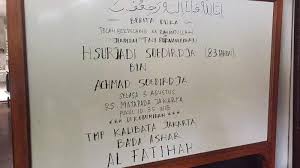 إنا لله وإنا إليه راجعون
BERITA DUKA
TELAH BERPULANG KE RAHMATULLAH
H. SURJADI SOEDIRDJA (83 TAHUN)
BIN
ACHMAD SOEDIRDJA
SELASA 3 AGUSTUS
RS. JAKARTA
PUKUL 10.35 WIB
DI KEBUMIKAN
TMP KALIBATA JAKARTA
BADA ASHAR
AL FATIHAH